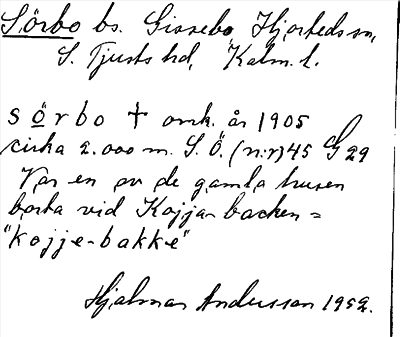 Sörbo bs. Gissebo, Hjorteds sn,
S. Tjusts hd, Kalm. l.
sörbo † omk. år 1905
cirka 2.000 m. S. Ö. (n:r) 45 G 29
Var en av de gamla husen
borta vid Kojjarbacken =
"kojje-bakke"
Hjalmar Andersson 1952.